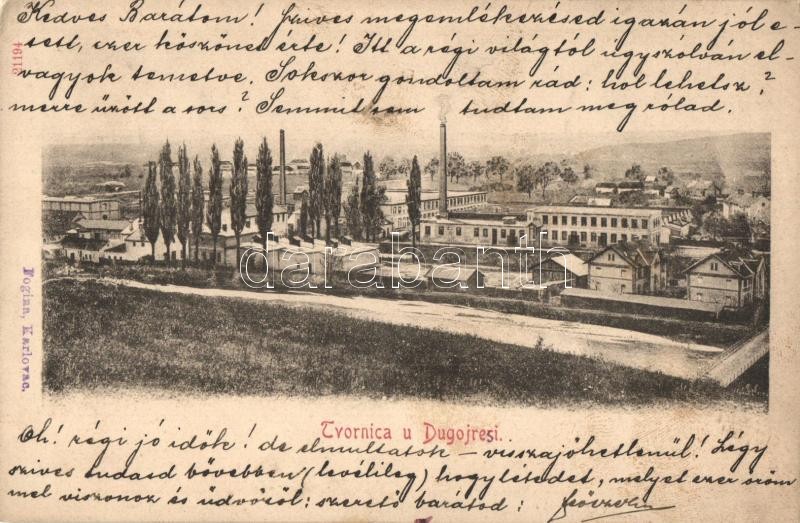 Kedves Barátom! Szives megemlékezésed igazán jól e-
sett, ezer köszönet érte! Itt a régi világtól úgyszólván el-
vagyok temetve. Sokszor gondoltam rád: hol lehetsz?
merre űzött a sors? Semmit sem tudtam meg rólad.
21194
darabanth.com
Foginn, Karlovac.
Tvornica u Dugojresi.
Oh! régi jó idők! de elmultatok - visszajöhetlenül! Légy
szives tudasd bővebben (levélileg) hogylétedet, melyet ezer öröm
mel viszonoz és üdvözöl: szerető barátod: